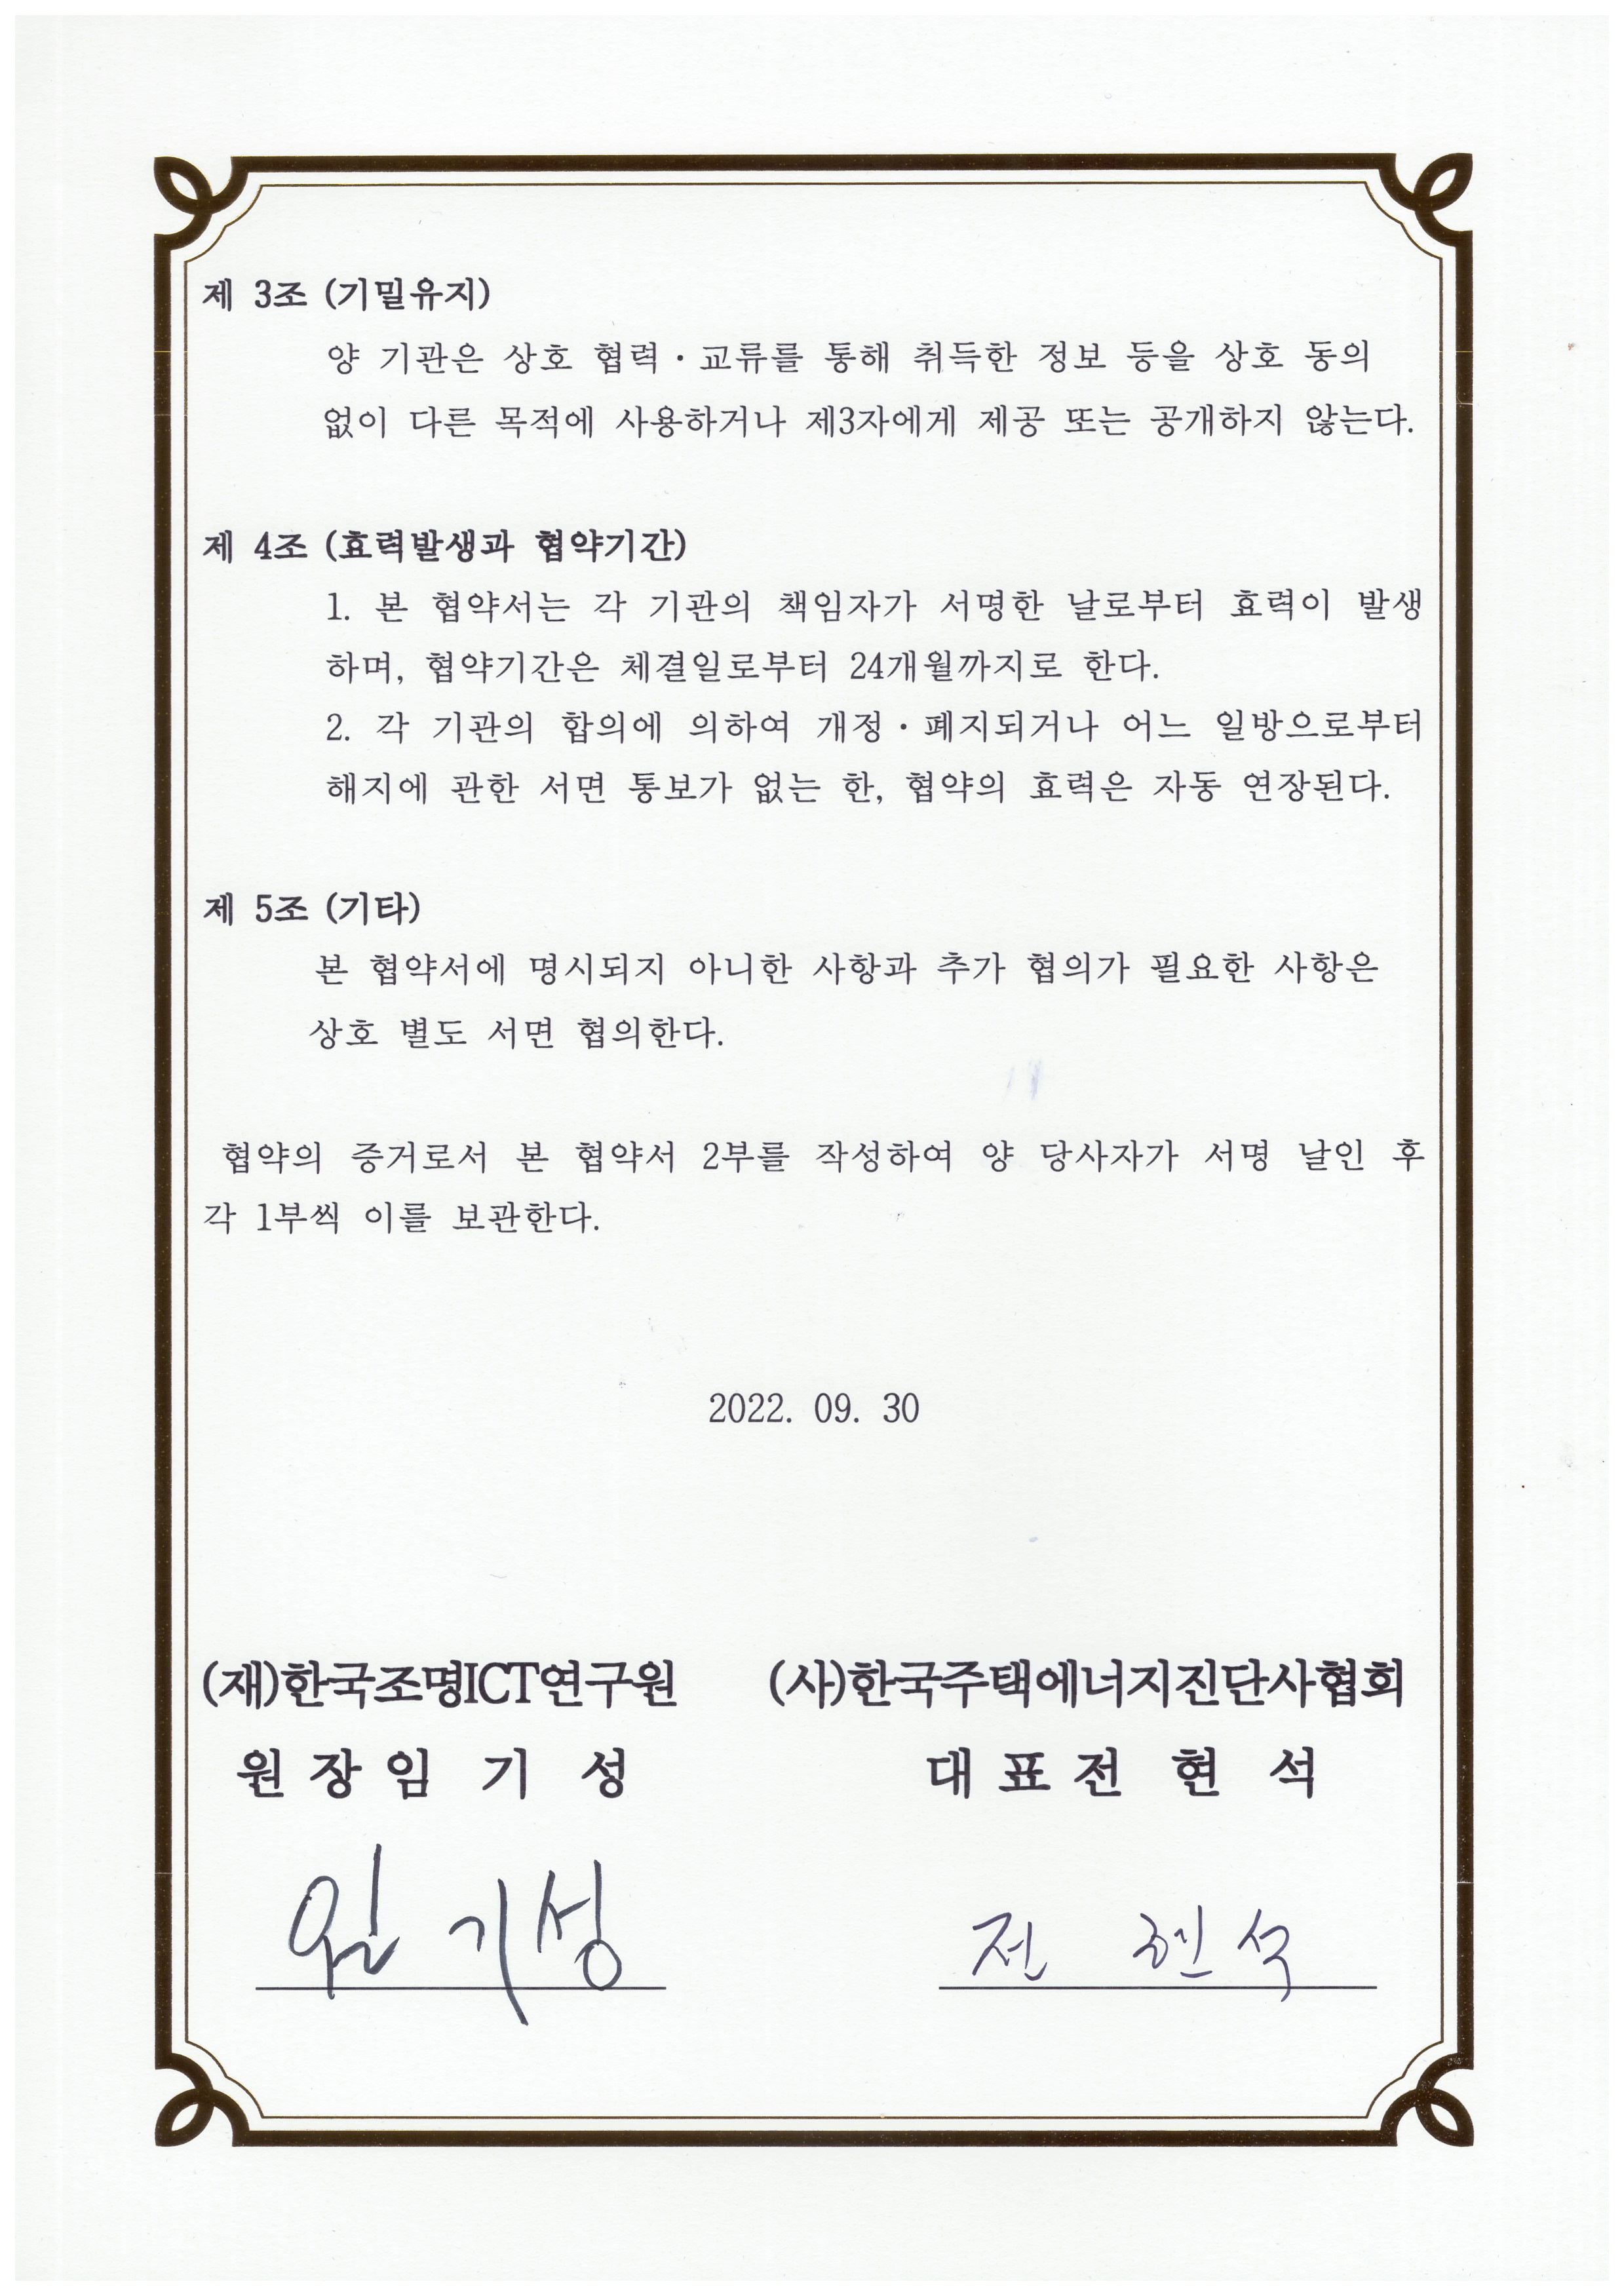 제 3조 (기밀유지)
양 기관은 상호 협력·교류를 통해 취득한 정보 등을 상호 동의
없이 다른 목적에 사용하거나 제3자에게 제공 또는 공개하지 않는다.
제 4조 (효력발생과 협약기간)
1. 본 협약서는 각 기관의 책임자가 서명한 날로부터 효력이 발생
하며, 협약기간은 체결일로부터 24개월까지로 한다.
2. 각 기관의 합의에 의하여 개정·폐지되거나 어느 일방으로부터
해지에 관한 서면 통보가 없는 한, 협약의 효력은 자동 연장된다.
제 5조 (기타)
본 협약서에 명시되지 아니한 사항과 추가 협의가 필요한 사항은
상호 별도 서면 협의한다.
협약의 증거로서 본 협약서 2부를 작성하여 양 당사자가 서명 날인 후
각 1부씩 이를 보관한다.
2022. 09. 30
(재)한국조명ICT연구원 (사)한국주택에너지진단사협회
원 장 임 기 성 대 표 전 현 석
임 기성 전 현석